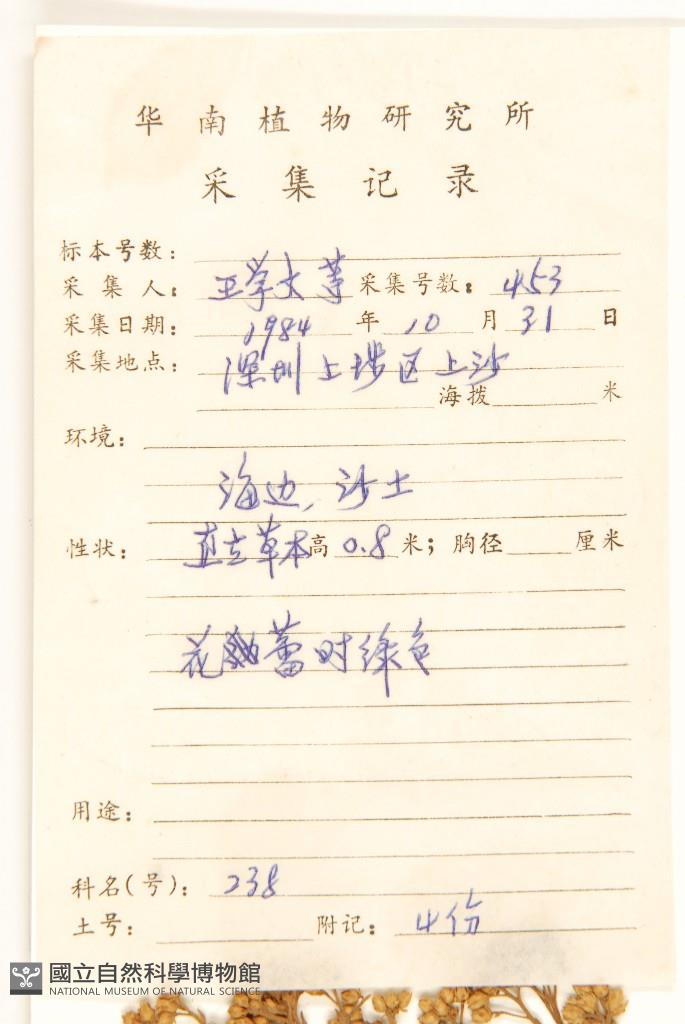 华南植物研究所
采集记录
标本号数:
采集人: 王学文等 采集号数: 453
采集日期: 1984 年 10 月 31 日
采集地点: 深圳上埗区上沙
海拨 米
环境:
海边, 沙土
性状: 直立草本 高 0.8 米; 胸径 厘米
花 蕾时绿色
用途:
科名(号): 238
土号: 附记: 4份
國立自然科學博物館
NATIONAL MUSEUM OF NATURAL SCIENCE